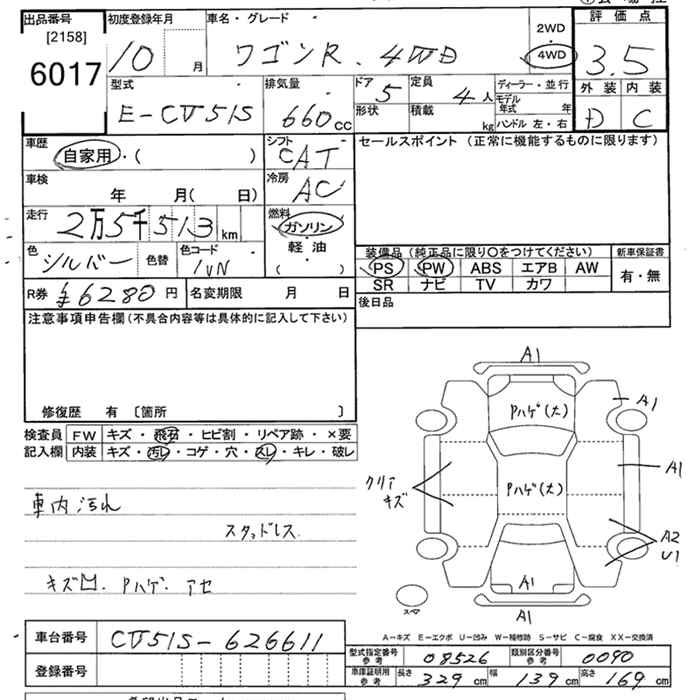 出品番号 初度登録年月 車名・グレード 評価点
[2158]
6017
10 月 ワゴンR . 4WD 2WD 4WD 3.5
型式 排気量 ドア 定員 ディーラー・並行 外装 内装
E-CV51S 660cc 5 4人 モデル年式 年 D C
形状 積載 kg ハンドル 左・右
車歴 シフト セールスポイント (正常に機能するものに限ります)
自家用・( ) CAT
車検 冷房
年 月( 日) AC
走行 燃料
2万5千513km ガソリン
色 色替 色コード 軽・油
シルバー ( ・ )
装備品 (純正品に限り○をつけてください) 新車保証書
PS PW ABS エアB AW 有・無
SR ナビ TV カワ
R券 ¥6280円 名変期限 月 日 後日品
注意事項申告欄(不具合内容等は具体的に記入して下さい)
修復歴 有 〔箇所 〕
検査員 FW キズ・飛石・ヒビ割・リペア跡・×要
記入欄 内装 キズ・汚レ・コゲ・穴・スレ・キレ・破レ
車内汚れ
スタッドレス.
キズ凹. Pハゲ. アセ
A1
Pハゲ(大) A1
クリアキズ Pハゲ(大) A1
A2
U1
A1
スペア A1
A-キズ E-エクボ U-凹み W-補修跡 S-サビ C-腐食 XX-交換済
車台番号 CV51S-626611
型式指定番号 参考 08526 類別区分番号 参考 0090
登録番号 車庫証明用 参考 長さ 329cm 幅 139cm 高さ 169cm